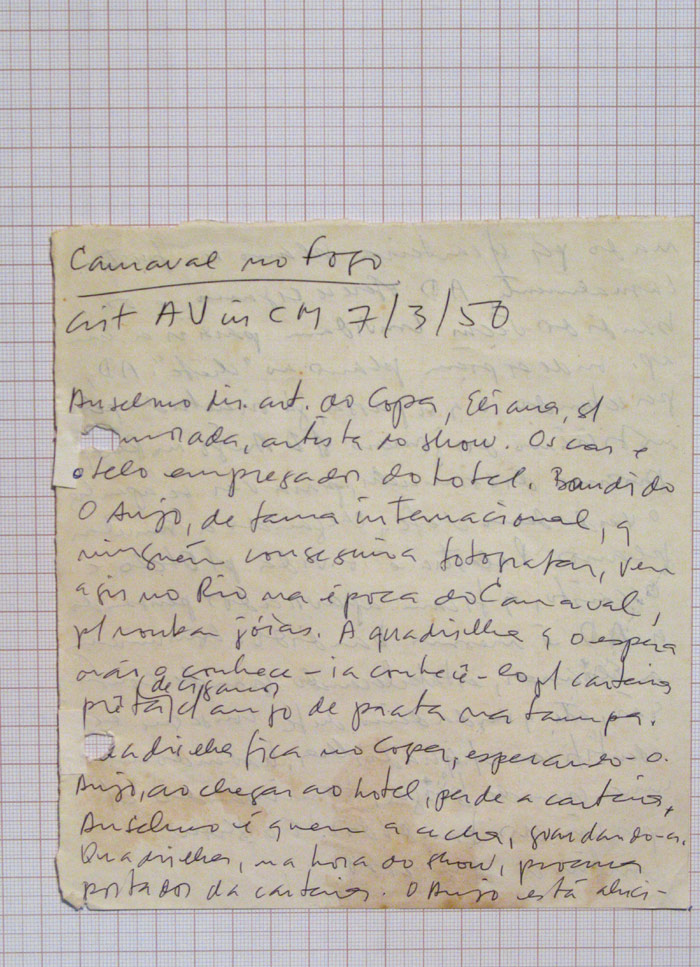 Carnaval no Fogo
crit AV in CM 7/3/50
Anselmo dir. art. do Copa, Eliana, s/
namorada, artista do show. Oscar e
otelo empregados do hotel. Bandido
O Anjo, de fama internacional, q
ninguém conseguira fotografar, vem
agir no Rio na época do Carnaval,
p/ roubar jóias. A quadrilha q o espera
não o conhece – ia conhecê-lo p/ carteira
(de cigarros)
preta c/ anjo de prata na tampa.
Quadrilha fica no Copa, esperando-o.
Anjo, ao chegar ao hotel, perde a carteira,
Anselmo é quem a acha, guardando-a.
Quadrilha, na hora do show, procura
portador da carteira. O Anjo está